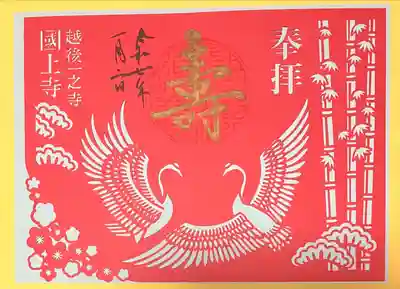 奉拝
壽
令和七年
一月一日
越後一之寺
國上寺